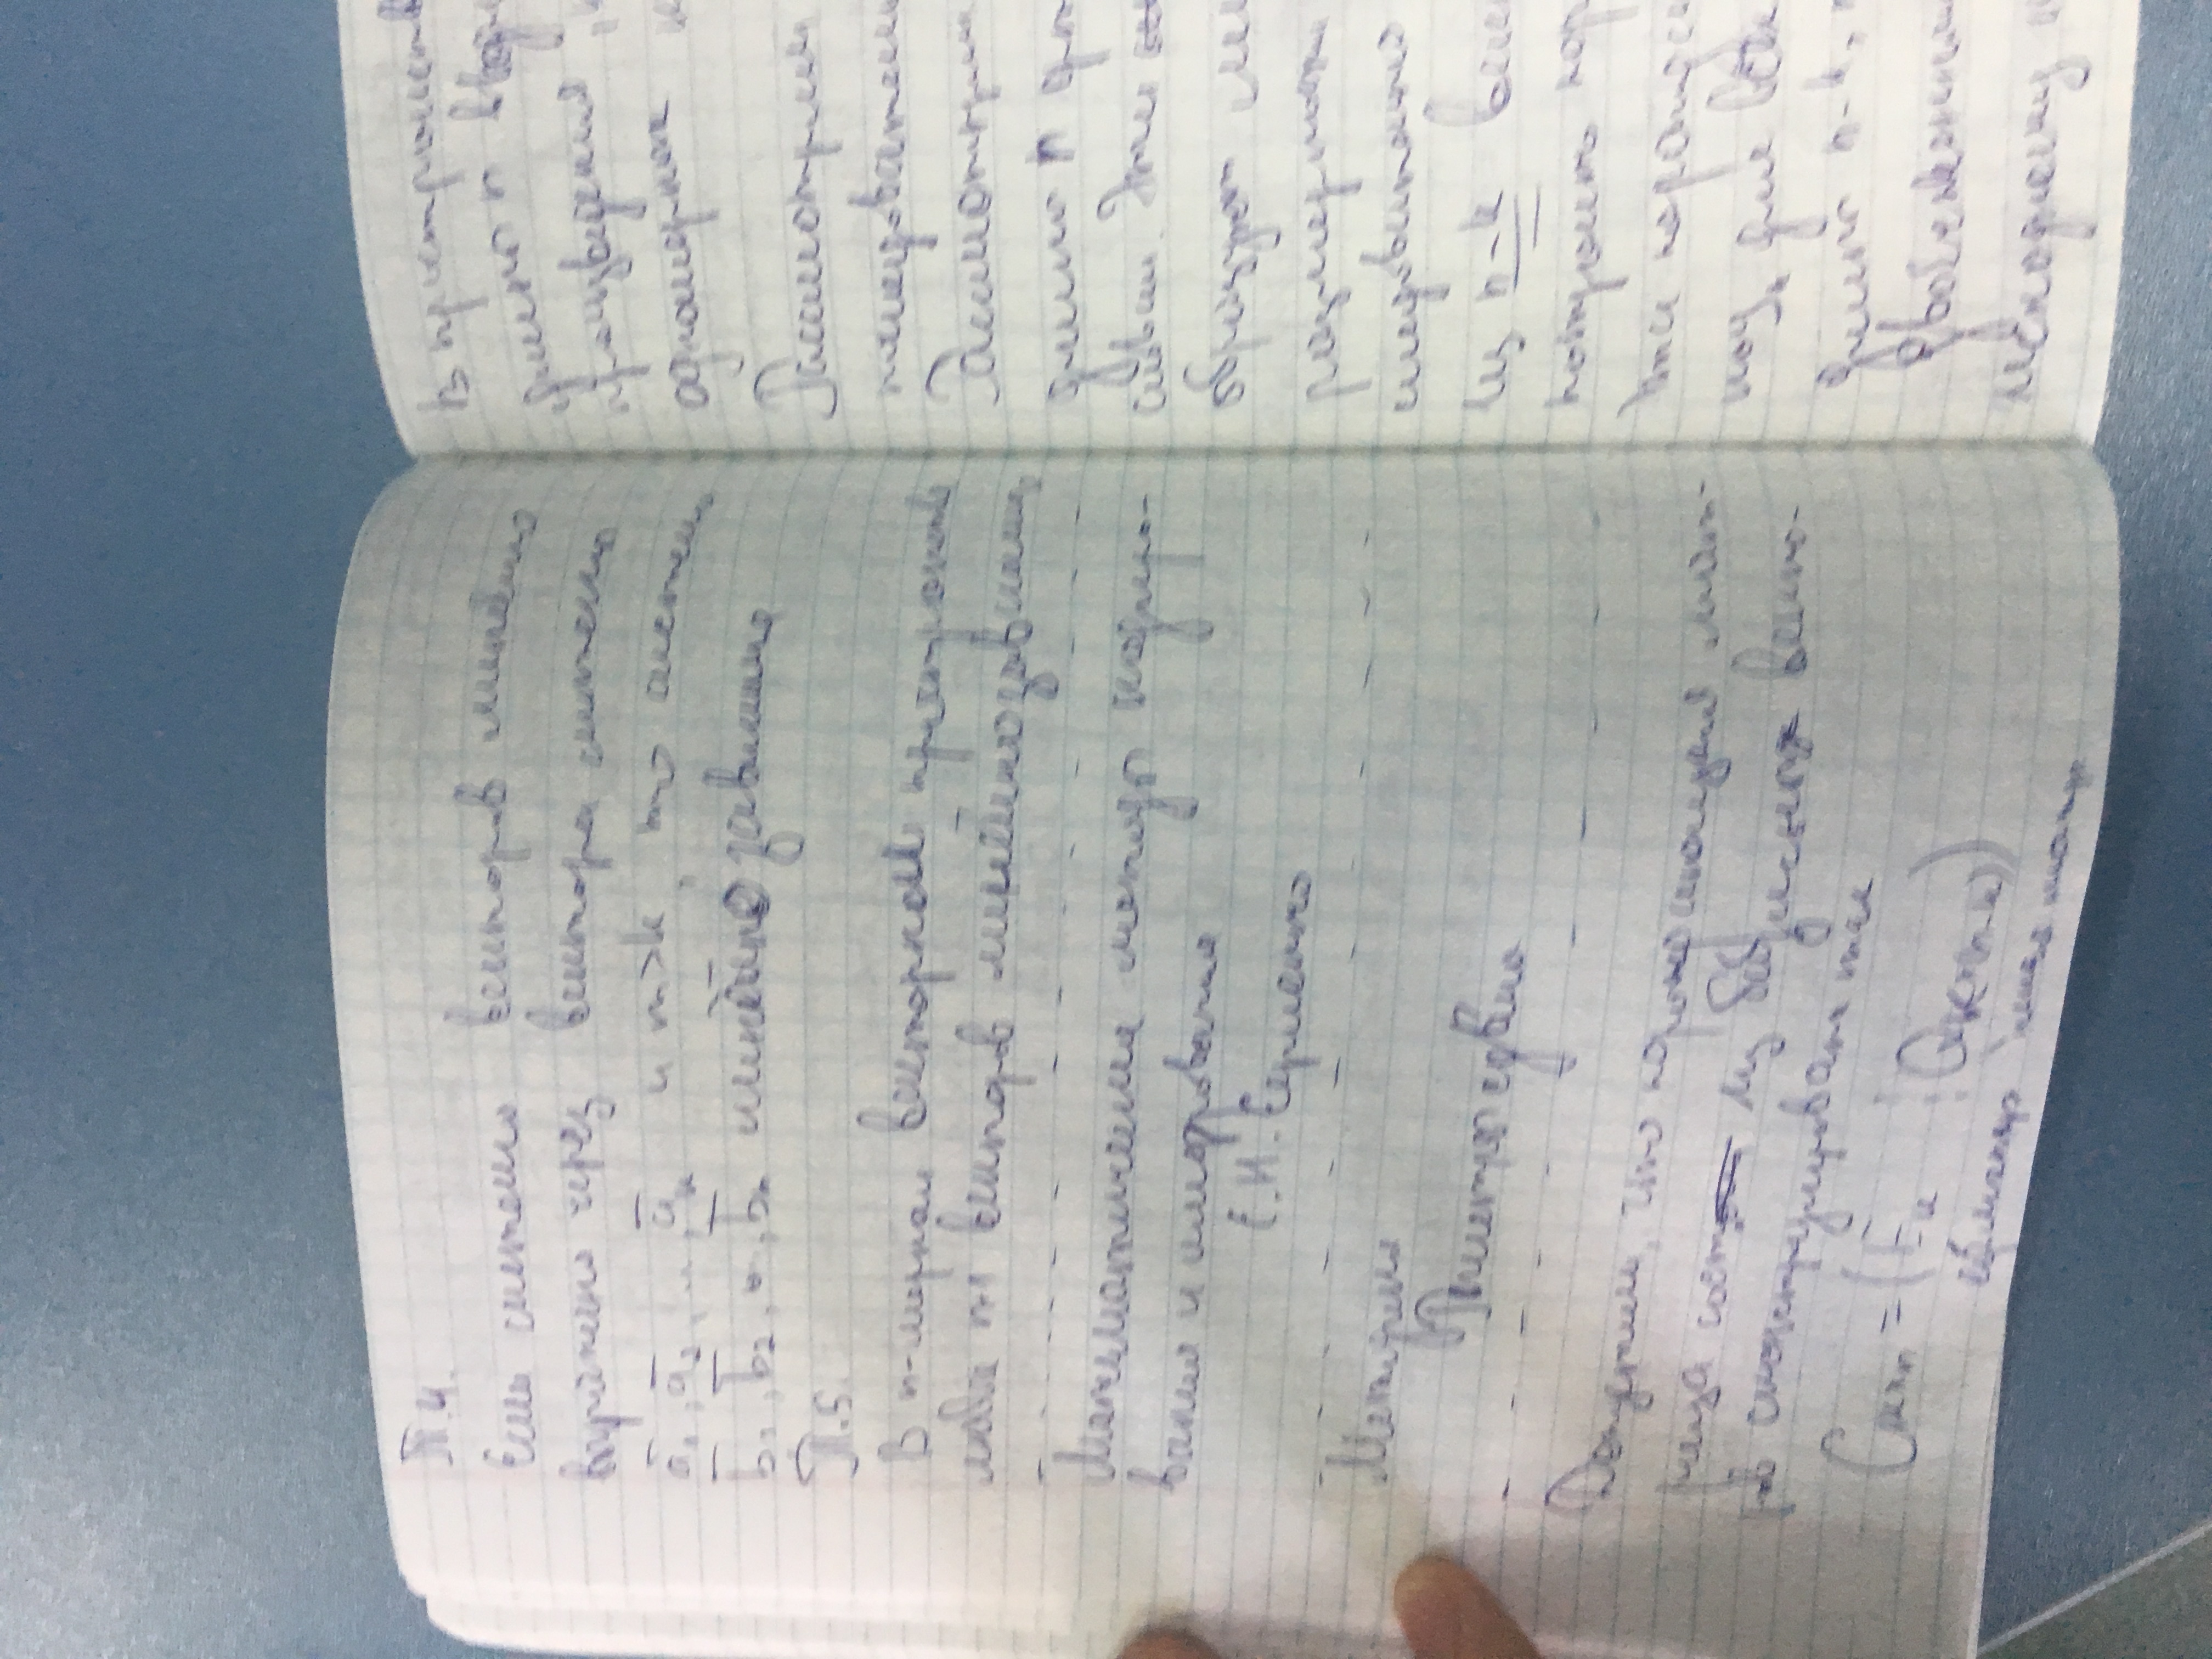 Т.4.
Если система векторов линейно
выражена через вектора системы
a̅₁, a̅₂, ..., a̅ₖ и m>k, то система
b̅₁, b̅₂, ..., b̅ₘ линейно зависима
Т.5.
В n-мерном векторном пространстве
любые n+1 векторов линейнозависимы
Математические методы кодиро-
вания и шифрования
Е.Н.
Методичка
Регистры сдвига
Допустим, что порождающая мат-
рица сост из базисных векто-
ров сконструирована так
Gₖₓₙ = (Eₖ ⋮ Qₖₓ₍ₙ₋ₖ₎)
матр
В пространстве
длины n
произведения
одномерных
Рассмотрим
последовательн
Рассмотрим
длины n
Эти
образуют
размерности
следовательно
Из n-k
построить пор
Эти порожд
код, для всех
длины n-k,
двойственным
исходному